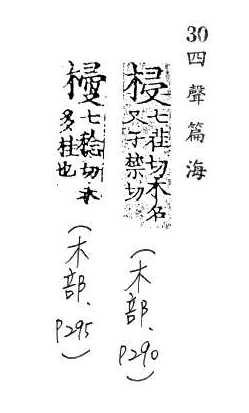 30四聲篇海
梫七荏切木名
又子禁切
(木部、P290)
梫七稔切木
名桂也
(木部、P295)